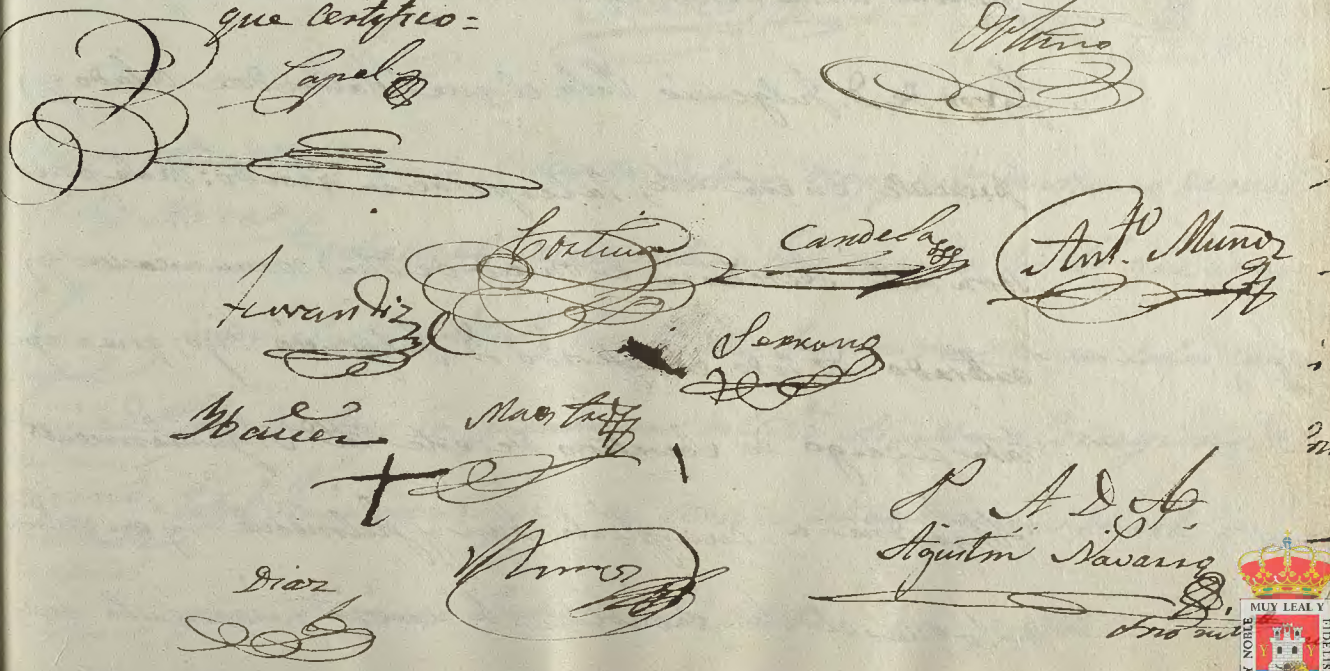 que certifico=
Capel
Cortina
Candela
Ant.to Muñoz
Serrano
Ybañez
Maestre
P A D A
Agustin Navarro
Diaz
MUY LEAL Y
Y NOBLE
FIDELIS